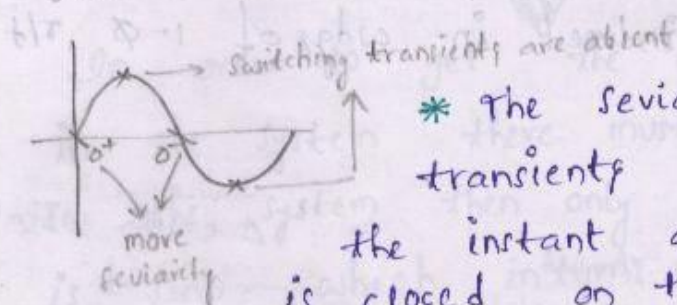 switching transients are absent
0+ 0-
more
seviarity
* The sevia
transients
the instant
is closed on t